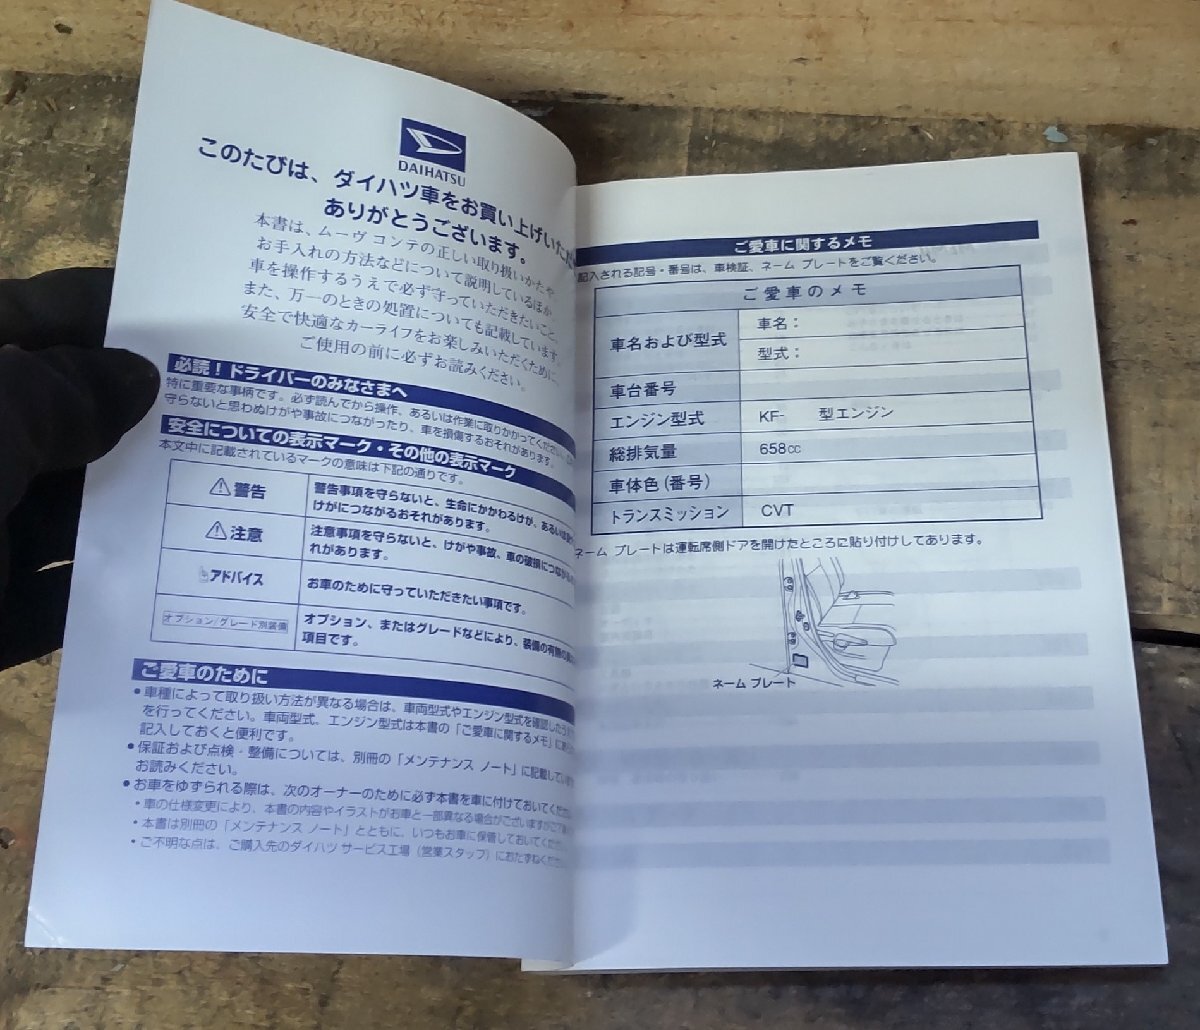 DAIHATSU
このたびは、ダイハツ車をお買い上げいただ
ありがとうございます。
本書は、ムーヴ コンテの正しい取り扱いかたや
お手入れの方法などについて説明しているほか
車を操作するうえで必ず守っていただきたいこと、
また、万一のときの処置についても記載しています。
安全で快適なカーライフをお楽しみいただくために、
ご使用の前に必ずお読みください。
必読!ドライバーのみなさまへ
特に重要な事柄です。必ず読んでから操作、あるいは作業に取りかかってください。
守らないと思わぬけがや事故につながったり、車を損傷するおそれがあります。
安全についての表示マーク・その他の表示マーク
本文中に記載されているマークの意味は下記の通りです。
警告
警告事項を守らないと、生命にかかわるけが、あるいは
けがにつながるおそれがあります。
注意
注意事項を守らないと、けがや事故、車の破損につながる
れがあります。
アドバイス
お車のために守っていただきたい事項です。
オプション/グレード別装備
オプション、またはグレードなどにより、装備の有無の
項目です。
ご愛車のために
•車種によって取り扱い方法が異なる場合は、車両型式やエンジン型式を確認したうえ
を行ってください。車両型式、エンジン型式は本書の「ご愛車に関するメモ」に
記入しておくと便利です。
•保証および点検・整備については、別冊の「メンテナンス ノート」に記載しています
お読みください。
•お車をゆずられる際は、次のオーナーのために必ず本書を車に付けておいてください
・車の仕様変更により、本書の内容やイラストがお車と一部異なる場合がございますがご了
・本書は別冊の「メンテナンス ノート」とともに、いつもお車に保管しておいてくだ
・ご不明な点は、ご購入先のダイハツ サービス工場(営業スタッフ)におたずねくださ
ご愛車に関するメモ
記入される記号・番号は、車検証、ネーム プレートをご覧ください。
ご愛車のメモ
車名および型式
車名:
型式:
車台番号
エンジン型式
KF- 型エンジン
総排気量
658cc
車体色(番号)
トランスミッション
CVT
ネーム プレートは運転席側ドアを開けたところに貼り付けしてあります。
ネーム プレート